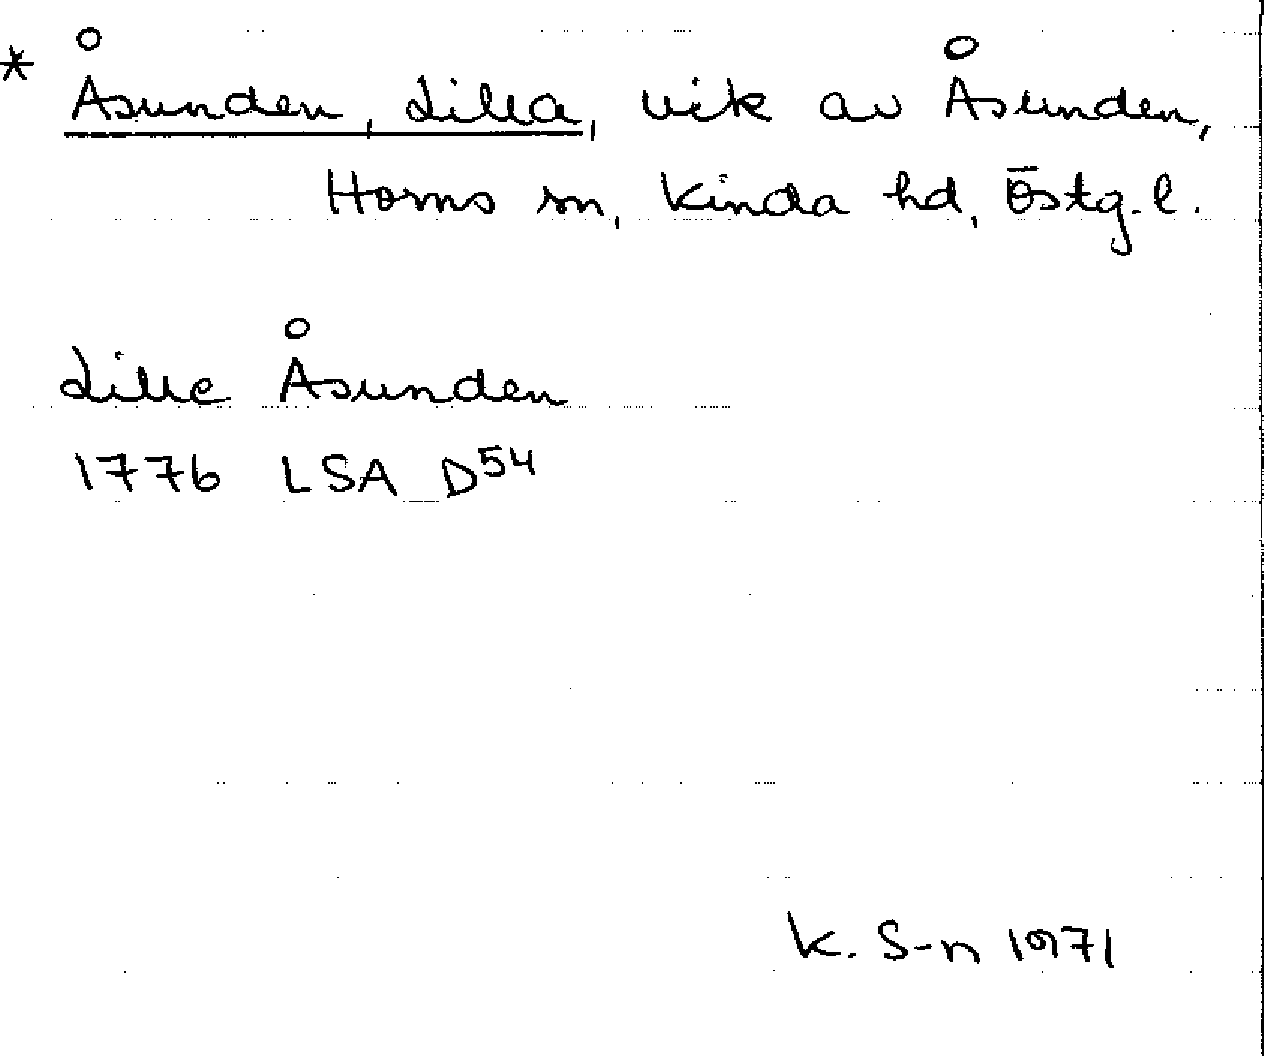 * Åsunden, Lilla, vik av Åsunden,
Horns sn, Kinda hd, Östg. l.
Lille Åsunden
1776 LSA D54
K. S-n 1971